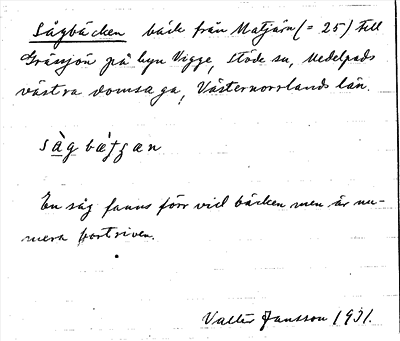 Sågbäcken bäck från Matjärn (= 25) till
Gränsjön på byn Vigge, Stöde sn, Medelpads
västra domsaga, Västernorrlands län.
En såg fanns förr vid bäcken men är nu-
mera bortriven.
Valter Jansson 1931.